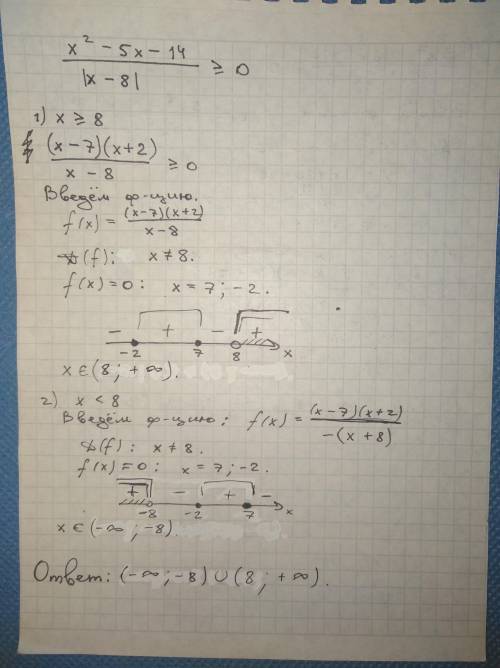 x² - 5x - 14 / |x - 8| ≥ 0
1) x ≥ 8
(x-7)(x+2) / x - 8 ≥ 0
Введём ф-цию.
f(x) = (x-7)(x+2) / x-8
D(f): x ≠ 8.
f(x) = 0: x = 7; -2.
- + - +
-2 7 8 x
x ∈ (8; +∞).
2) x < 8
Введём ф-цию: f(x) = (x-7)(x+2) / -(x+8)
D(f): x ≠ 8.
f(x) = 0: x = 7; -2.
+ - + -
-8 -2 7 x
x ∈ (-∞; -8).
Ответ: (-∞; -8) ∪ (8; +∞).